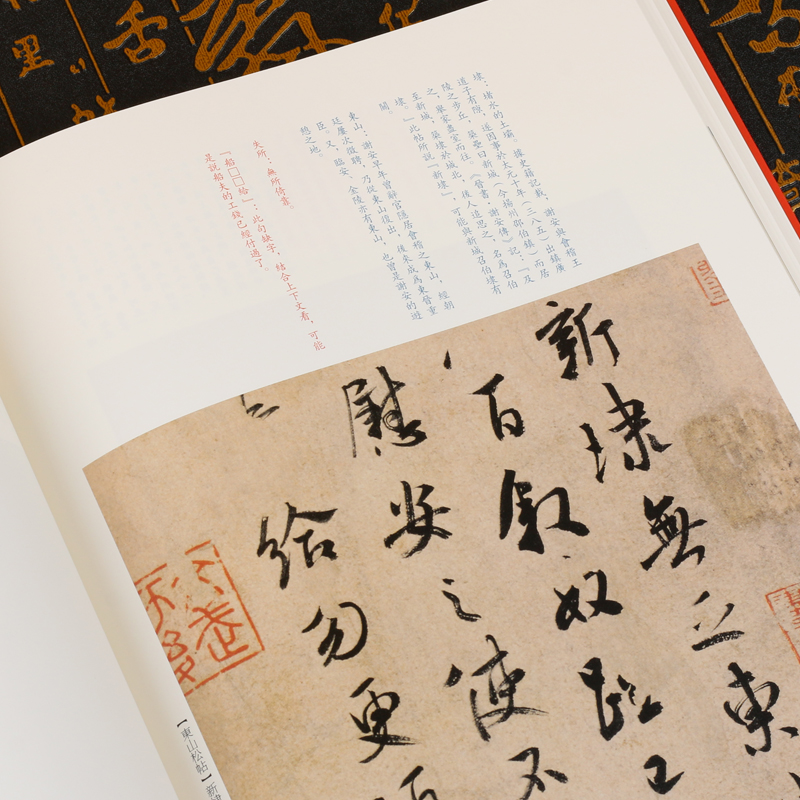 埭：堵水的土壩。據史籍記載，謝安與會稽王
道子有隙，遂因事於太元十年（三八五）出鎮廣
陵之步丘，築壘曰新城（今揚州邵伯鎮）而居
之，舉家盡室而往。《晉書·謝安傳》記：「及
至新城，築埭於城北，後人追思之，名為召伯
埭。」此帖所說「新埭」，可能與新城召伯埭有
關。
東山：謝安早年曾辭官隱居會稽之東山，經朝
廷屢次徵聘，乃從東山復出，後來成為東晉重
臣。又，臨安、金陵亦有東山，也曾是謝安的遊
憩之地。
失所：無所倚靠。
「船□□給」：此句缺字，結合上下文看，可能
是說船夫的工錢已經付過了。
新埭無乏東
百敘奴
慰安之使不
給勿更
【東山松帖】新埭